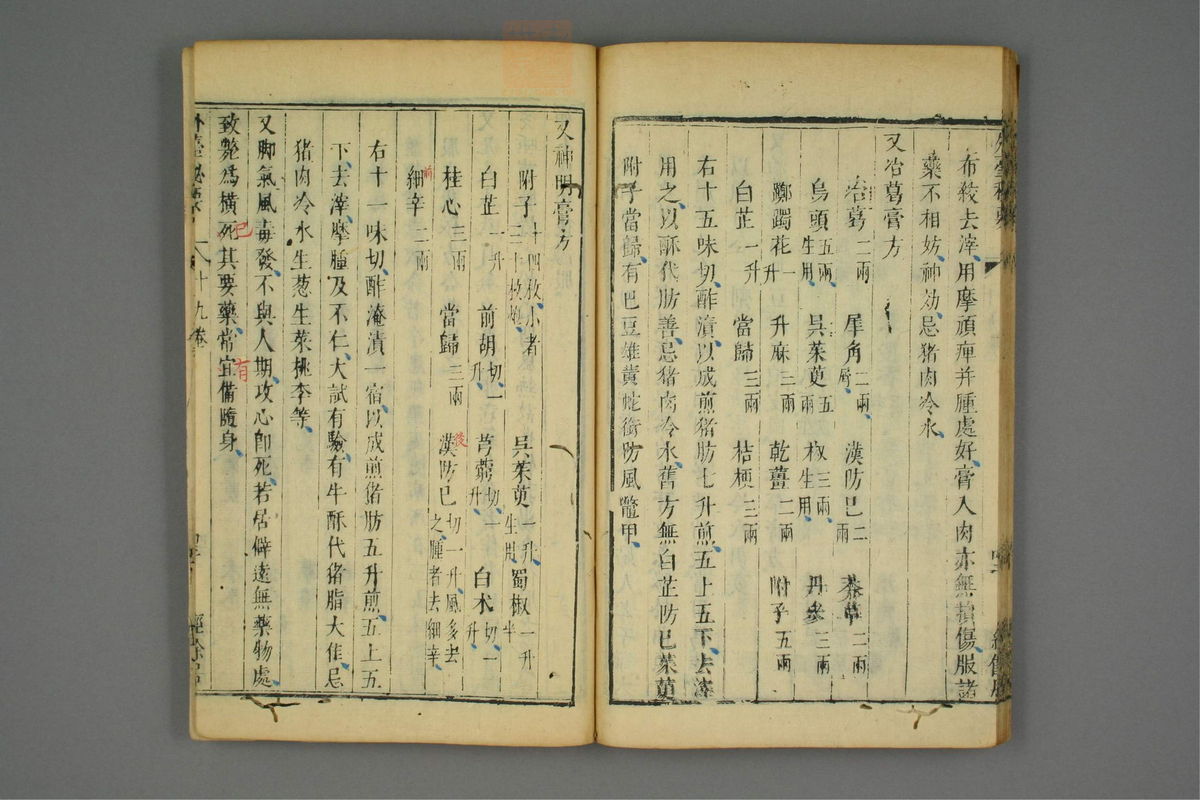 布絞去滓用摩頑痺并腫處好膏入肉亦無損傷服諸
藥不相妨神効忌猪肉冷水
又㕮葛膏方
葛二兩 犀角二兩屑 漢防已二兩 莽草二兩
烏頭五兩生用 吳茱萸五兩 椒三兩生用 丹參三兩
躑躅花一升 升麻三兩 乾薑二兩 附子五兩
白芷一升 當歸三兩 桔梗三兩
右十五味切酢漬以成煎猪肪七升煎五上五下去滓
用之以酥代肪善忌猪肉冷水舊方無白芷防已茱萸
附子當歸有巴豆雄黃蛇銜防風鼈甲
又神明膏方
附子十四枚小者二十枚炮 吳茱萸一升生用 蜀椒一升半
白芷一升 前胡切一升 芎藭切一升 白朮切一升
桂心三兩 當歸三兩 漢防已切一升風多去之腫者去細辛
後
細辛二兩
前
右十一味切酢淹漬一宿以成煎猪肪五升煎五上五
下去滓摩腫及不仁大試有驗有牛酥代猪脂大佳忌
猪肉冷水生葱生菜桃李等
又脚氣風毒發不與人期攻心卽死若居僻遠無藥物處
致斃爲橫死其要藥常宜備隨身
已
有
外臺秘要 十九卷 經餘居